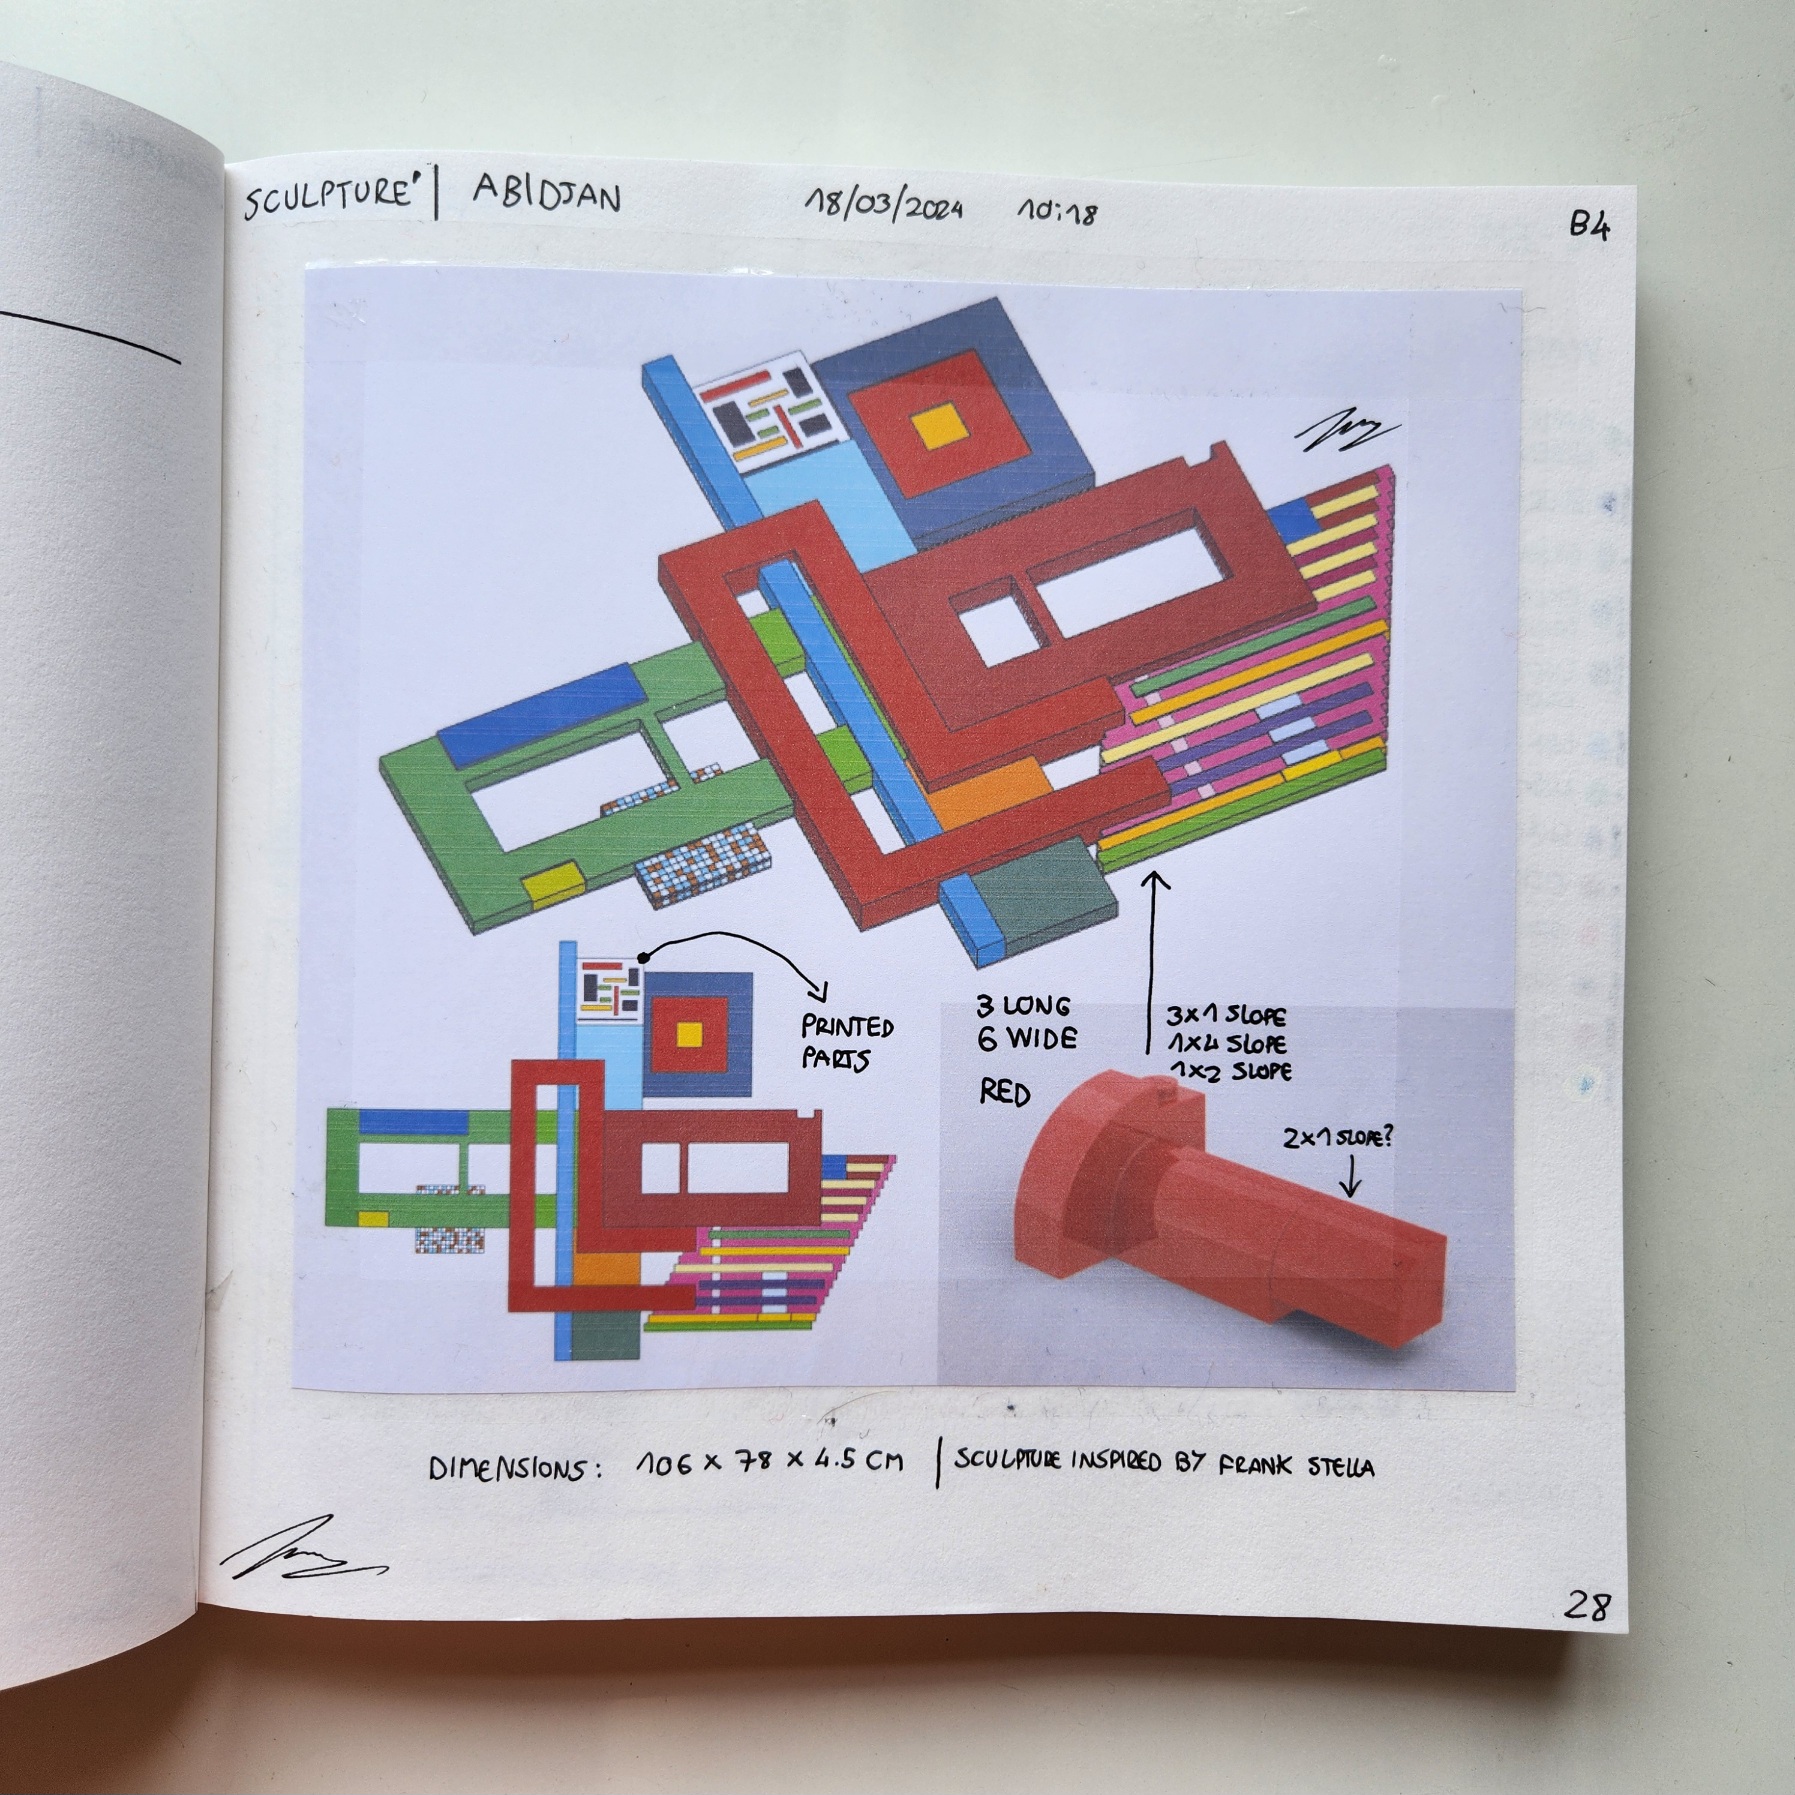 SCULPTURE' | ABIDJAN 18/03/2024 10:18 B4
PRINTED
PARTS
3 LONG
6 WIDE
RED
3x1 SLOPE
1x4 SLOPE
1x2 SLOPE
2x1 SLOPE?
DIMENSIONS: 106 x 78 x 4.5 CM | SCULPTURE INSPIRED BY FRANK STELLA
28